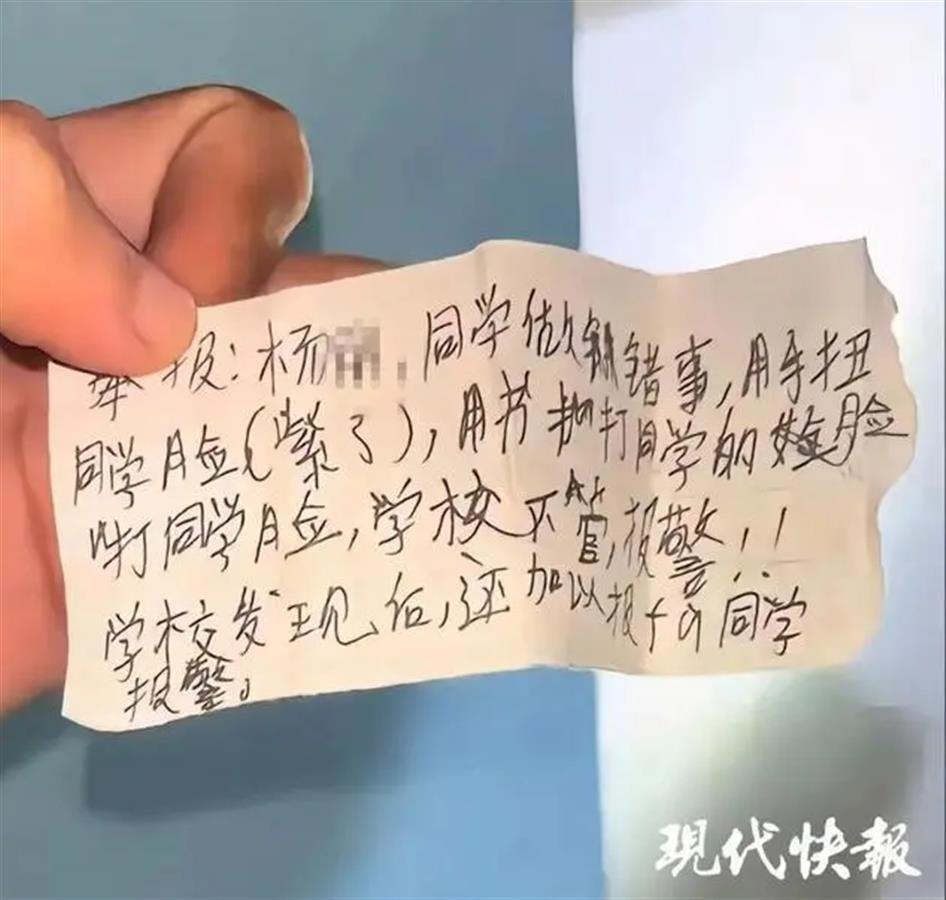 举报：杨 同学做错事，用手扭
同学脸（紫了），用书打同学的脸
打同学脸，学校不管，报警！！
学校发现后，还加以报 同学
报警。
現代快報